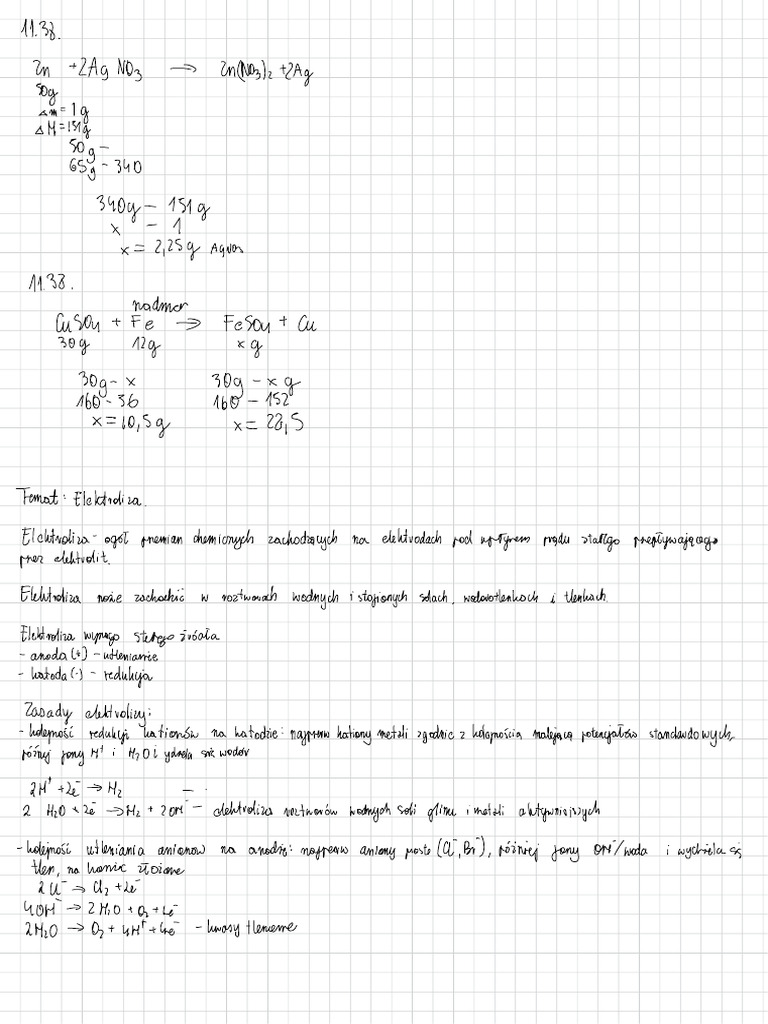 11.38.
Zn + 2AgNO3 → Zn(NO3)2 + 2Ag
50g
Δm = 1g
ΔM = 151g
50g –
65g – 340
340g – 151g
x – 1
x = 2,25g AgNO3
11.38.
nadmiar
CuSO4 + Fe → FeSO4 + Cu
30g 12g x g
30g – x 30g – x g
160 – 56 160 – 152
x = 10,5g x = 28,5
Temat: Elektroliza.
Elektroliza – ogół przemian chemicznych zachodzących na elektrodach pod wpływem prądu stałego przepływającego
przez elektrolit.
Elektroliza może zachodzić w roztworach wodnych i stopionych solach, wodorotlenkach i tlenkach.
Elektroliza wymaga stałego źródła
– anoda (+) – utlenianie
– katoda (-) – redukcja
Zasady elektrolizy:
– kolejność redukcji kationów na katodzie: najpierw kationy metali zgodnie z kolejnością malejącą potencjałów standardowych,
później jony H⁺ i H2O i wydziela się wodór
2H⁺ + 2e⁻ → H2
2 H2O + 2e⁻ → H2 + 2OH⁻ – elektroliza roztworów wodnych soli glinu i metali aktywniejszych
– kolejność utleniania anionów na anodzie: najpierw aniony proste (Cl⁻, Br⁻), później jony OH⁻/woda i wydziela się
tlen, na koniec złożone
2Cl⁻ → Cl2 + 2e⁻
4OH⁻ → 2H2O + O2 + 4e⁻
2H2O → O2 + 4H⁺ + 4e⁻ – kwasy tlenowe